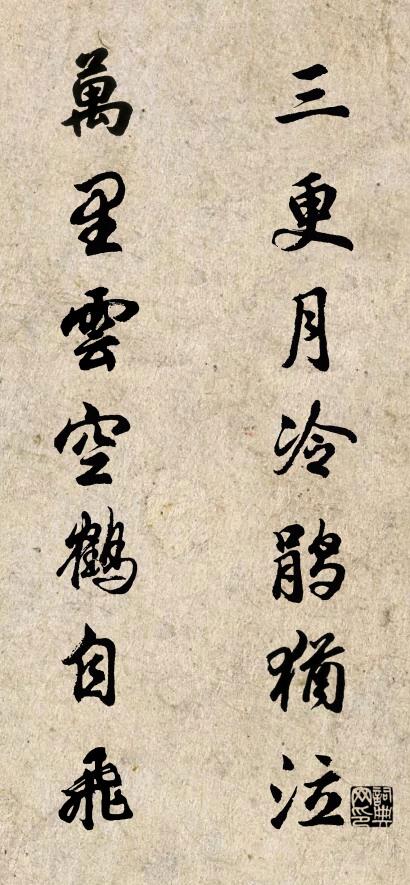 三更月冷鹃猶泣
萬里雲空鶴自飛
詞典網印